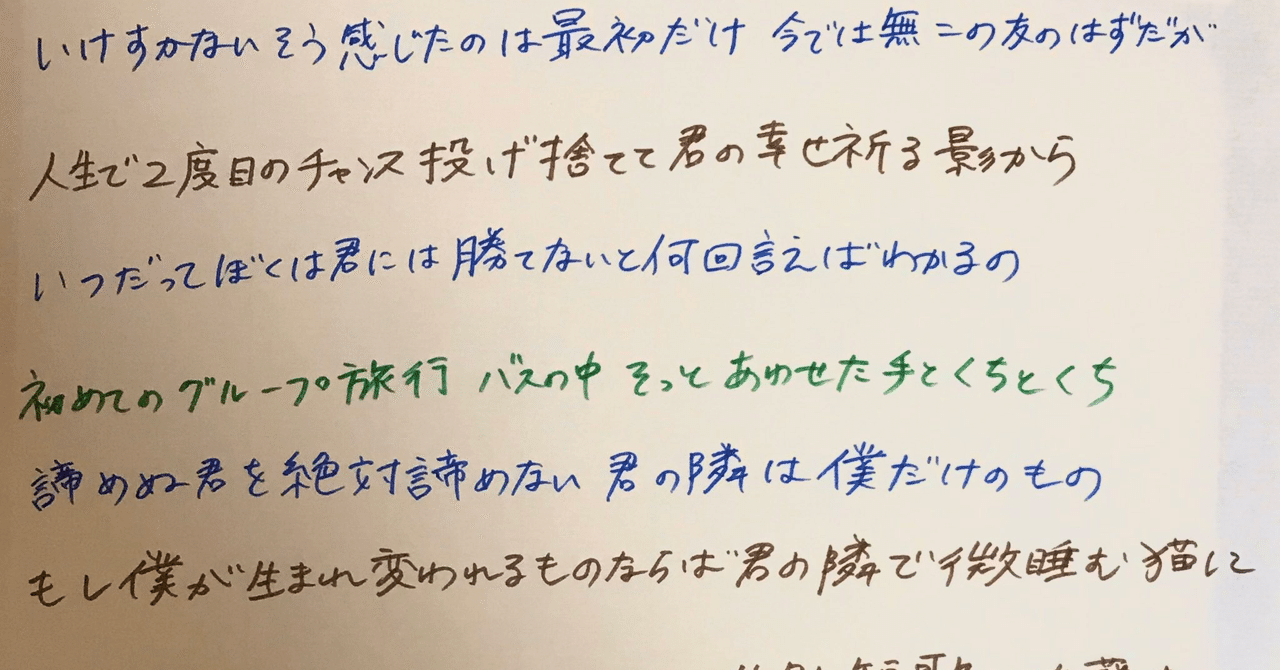 いけすかないそう感じたのは最初だけ 今では無二の友のはずだが
人生で2度目のチャンス投げ捨てて君の幸せ祈る影から
いつだってぼくは君には勝てないと何回言えばわかるの
初めてのグループ旅行 バスの中 そっとあわせた手とくちとくち
諦めぬ君を絶対諦めない 君の隣は僕だけのもの
もし僕が生まれ変われるものならば君の隣で微睡む猫に